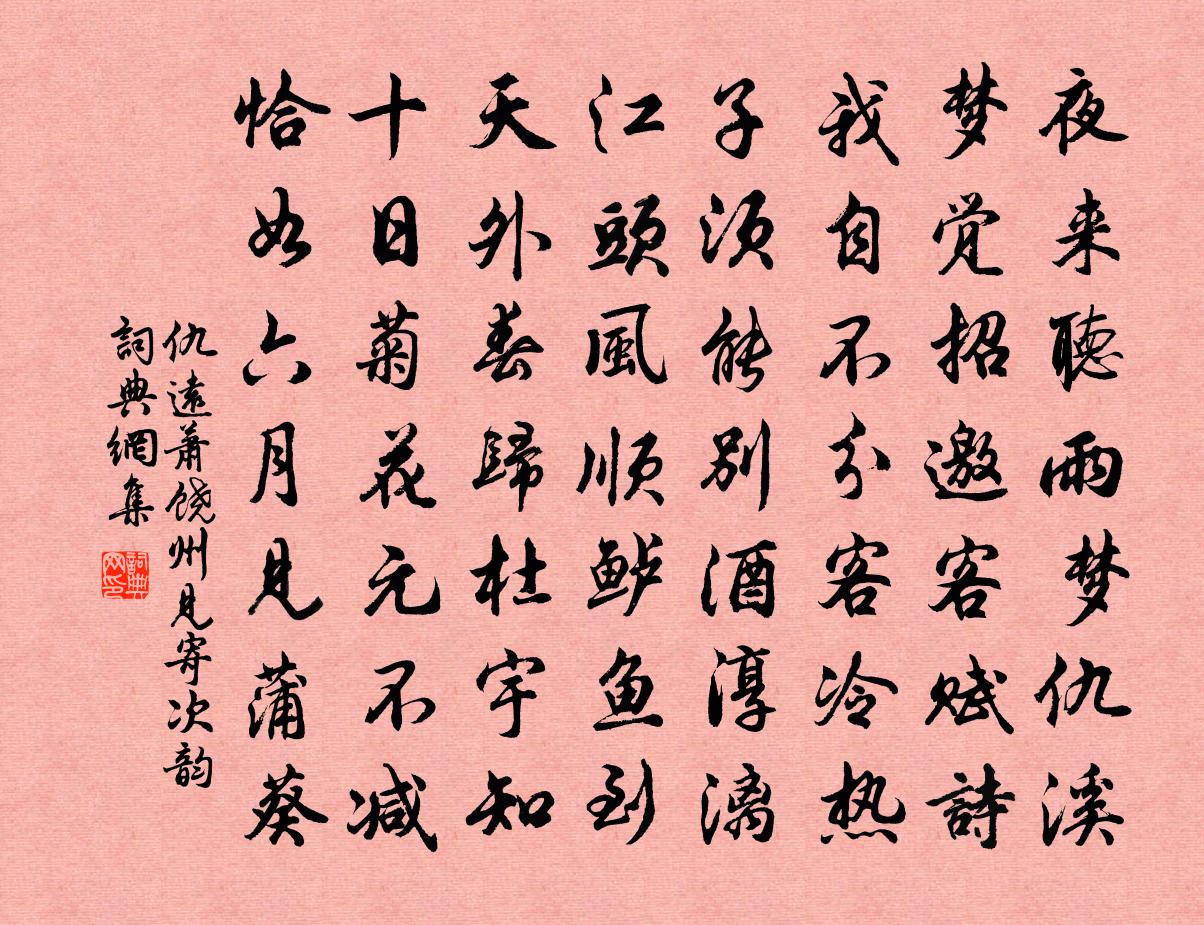 夜来聽雨梦仇溪
梦觉招邀客赋詩
我自不分客冷热
子须能别酒淳漓
江頭風顺鲈鱼到
天外春歸杜宇知
十日菊花元不减
恰如六月見蒲葵
仇遠萧饶州見寄次韵
詞典網集
詞典网印